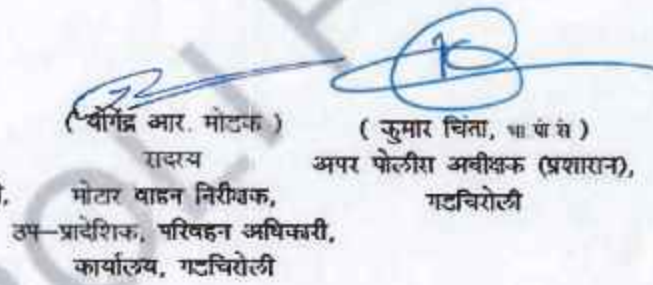 ( योगेंद्र आर. मोटक )
सदस्य
मोटार वाहन निरीक्षक,
उप-प्रादेशिक, परिवहन अधिकारी,
कार्यालय, गडचिरोली
( कुमार चिंता, भा पो से )
अपर पोलीस अधीक्षक (प्रशासन),
गडचिरोली